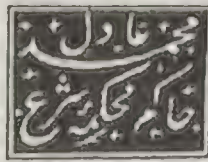 محمد عادل
حاکم محکمه شرع